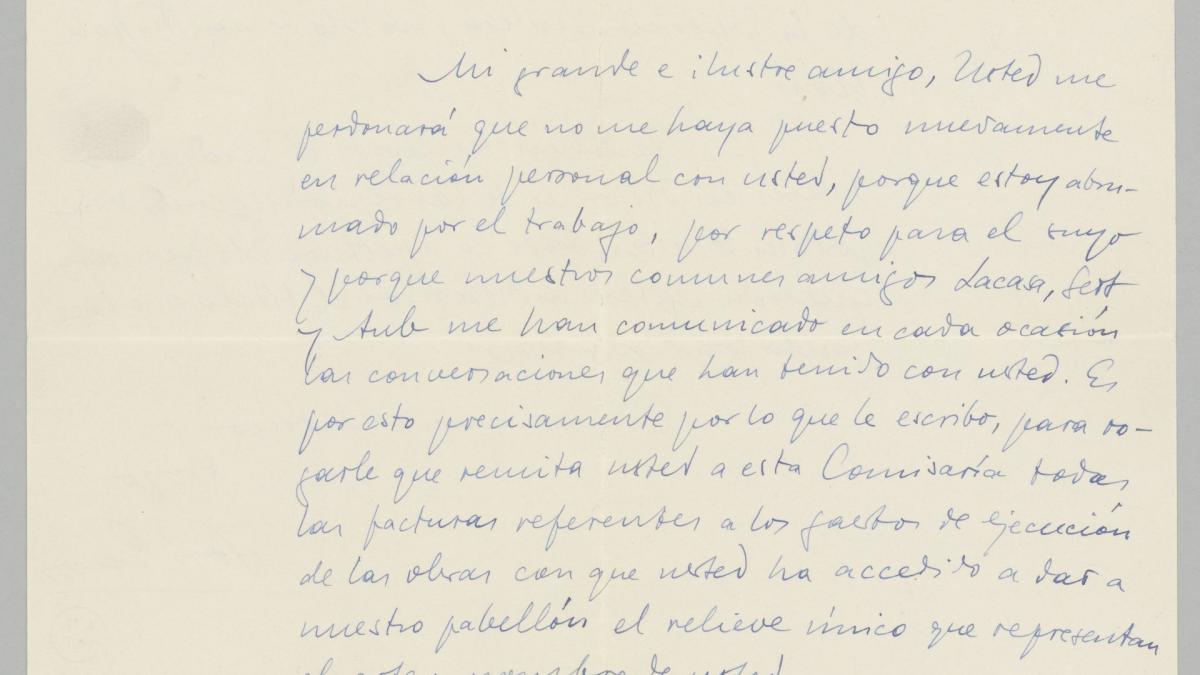 Mi grande e ilustre amigo, Usted me
perdonará que no me haya puesto nuevamente
en relación personal con usted, porque estoy abru-
mado por el trabajo, por respeto para el suyo
y porque nuestros comunes amigos Lacasa, Sert
y Aub me han comunicado en cada ocasión
las conversaciones que han tenido con usted. Es
por esto precisamente por lo que le escribo, para ro-
garle que remita usted a esta Comisaría todas
las facturas referentes a los gastos de ejecución
de las obras con que usted ha accedido a dar a
nuestro pabellón el relieve único que representan
nombre de usted